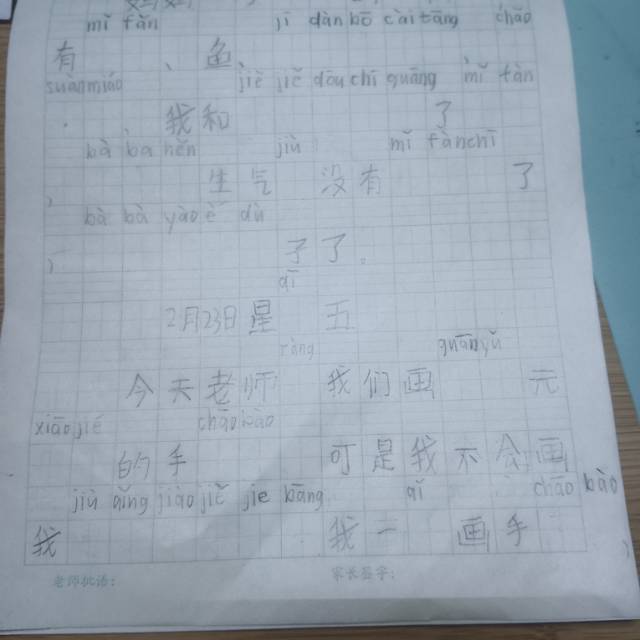 mǐ fàn jī dàn bō cài tāng chǎo
有 、鱼、
suàn miáo jiě jiě dōu chī guāng mǐ fàn
我和 了
bà ba hěn jiù mǐ fàn chī
生气 没有 了
bà bà yào è dù
子了。
2月23日星 五
ràng guān yú
今天老师 我们画 元
xiāo jié
的手 可是我不会画
jiù qǐng jiào jiě jie bāng chāo bào
我 我一 画手
老师批语: 家长签字: